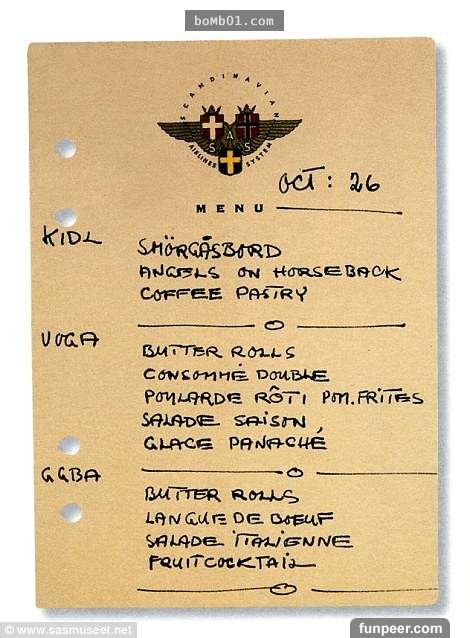 bomb01.com
SCANDINAVIAN
SAS
AIRLINES SYSTEM
OCT: 26
MENU
KIDL
SMÖRGÅSBORD
ANGELS ON HORSEBACK
COFFEE PASTRY
VOGA
BUTTER ROLLS
CONSOMMÉ DOUBLE
POULARDE RÔTI POM. FRITES
SALADE SAISON
GLACE PANACHÉ
GGBA
BUTTER ROLLS
LANGUE DE BOEUF
SALADE ITALIENNE
FRUITCOCKTAIL
© www.sasmuseet.net
funpeer.com